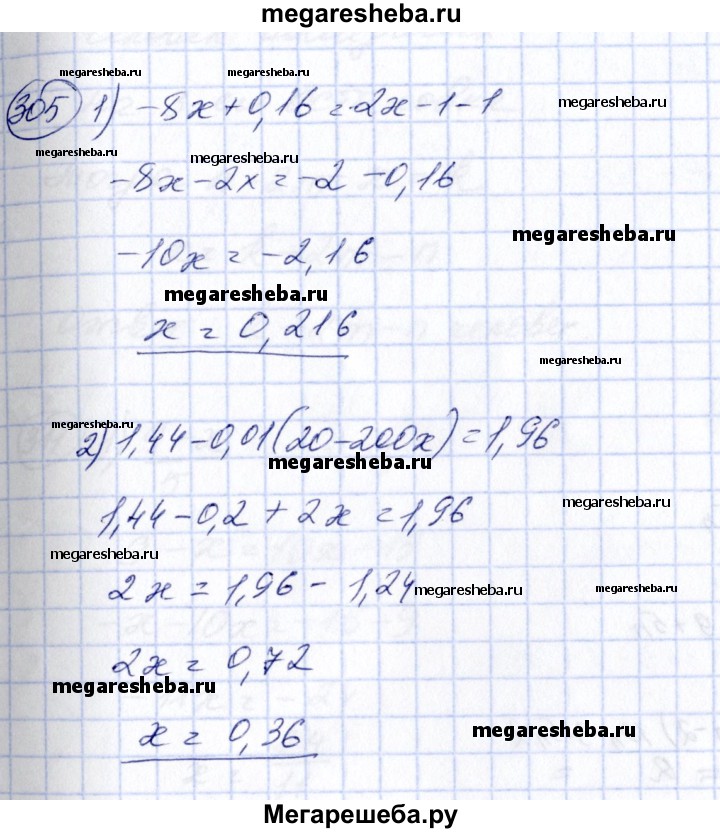 megaresheba.ru
megaresheba.ru megaresheba.ru megaresheba.ru
305 1) -8x+0,16=2x-1-1
megaresheba.ru
megaresheba.ru megaresheba.ru
-8x-2x=-2-0,16
megaresheba.ru
-10x=-2,16
megaresheba.ru
x=0,216
megaresheba.ru
megaresheba.ru
2) 1,44-0,01(20-200x)=1,96
megaresheba.ru
megaresheba.ru
1,44-0,2+2x=1,96
megaresheba.ru
2x=1,96-1,24
megaresheba.ru megaresheba.ru
2x=0,72
megaresheba.ru
x=0,36
megaresheba.ru
Мегарешеба.ру